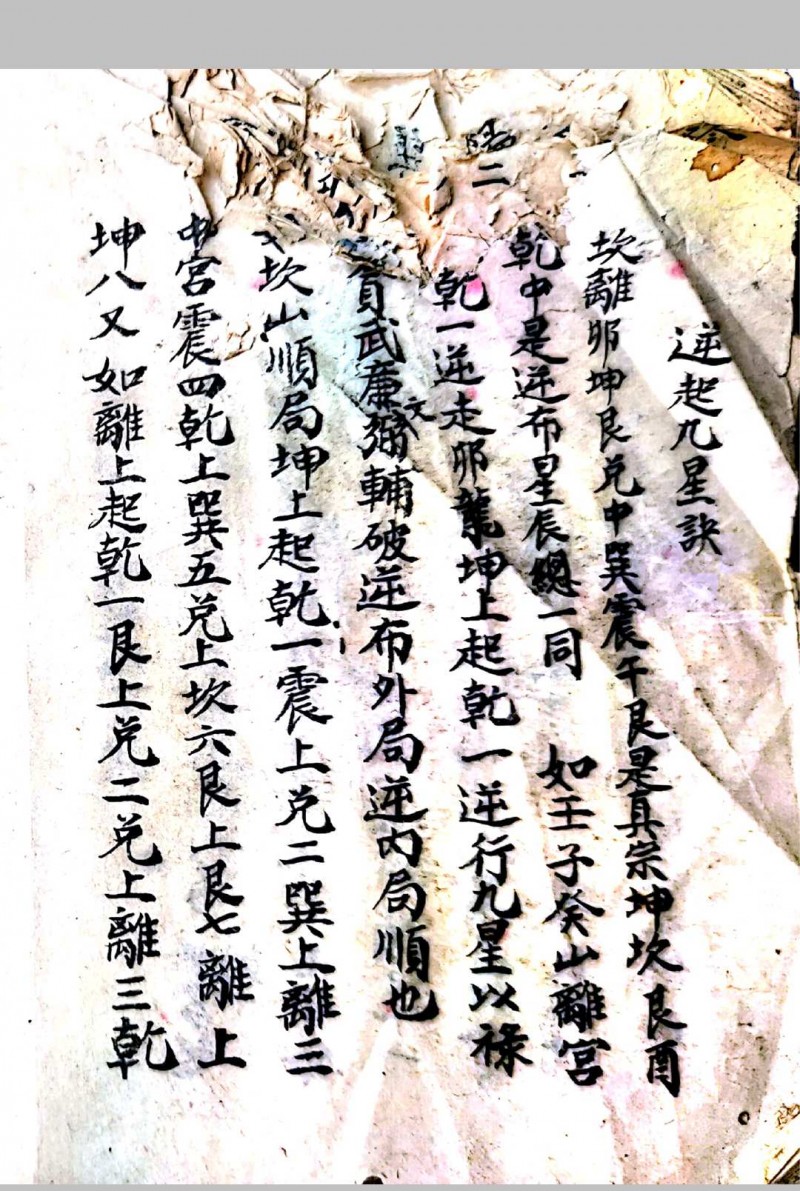 逆起九星訣
坎離卯坤艮兌中巽震午艮是真宗坤坎艮酉
乾中是逆布星辰總一同 如壬子癸山離宮
乾一逆走卯巽坤上起乾一逆行九星以祿
貪武廉文弼輔破逆布外局逆內局順也
坎山順局坤上起乾一震上兌二巽上離三
中宮震四乾上巽五兌上坎六艮上艮七離上
坤八又如離上起乾一艮上兌二兌上離三乾
二